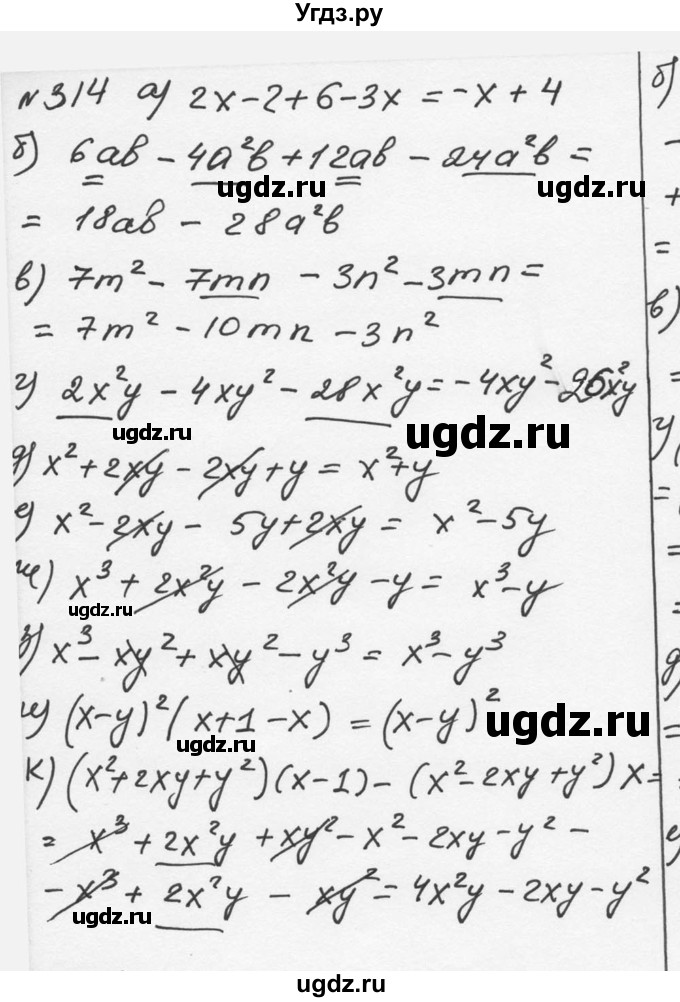 Угдз.ру
№314 а) 2x-2+6-3x = -x+4
б) 6ab - 4a²b + 12ab - 24a²b =
= 18ab - 28a²b
в) 7m² - 7mn - 3n² - 3mn =
= 7m² - 10mn - 3n²
г) 2x²y - 4xy² - 28x²y = -4xy² - 26x²y
д) x² + 2xy - 2xy + y = x² + y
е) x² - 2xy - 5y + 2xy = x² - 5y
ж) x³ + 2x²y - 2x²y - y = x³ - y
з) x³ - xy² + xy² - y³ = x³ - y³
и) (x-y)²(x+1-x) = (x-y)²
к) (x²+2xy+y²)(x-1) - (x²-2xy+y²)x =
= x³ + 2x²y + xy² - x² - 2xy - y² -
- x³ + 2x²y - xy² = 4x²y - 2xy - y²
б)
-
+
=
в)
=
=
=
д
=
е
ugdz.ru
ugdz.ru
ugdz.ru
ugdz.ru
ugdz.ru
ugdz.ru
ugdz.ru
ugdz.ru
ugdz.ru
ugdz.ru